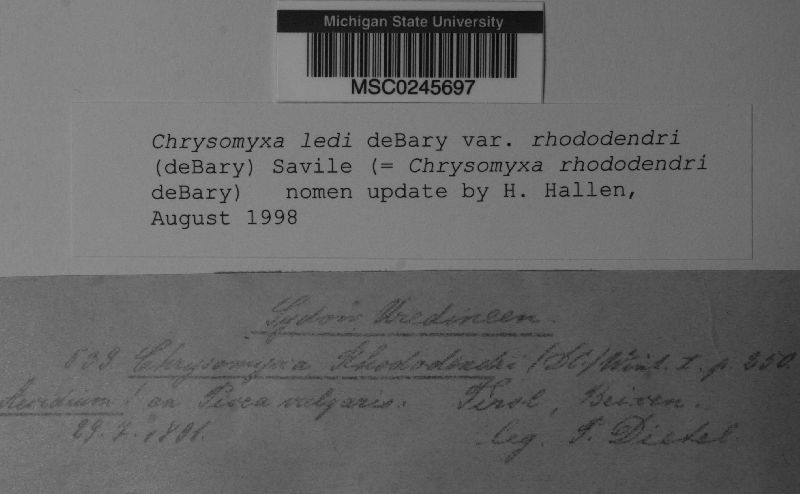 Michigan State University
MSC0245697
Chrysomyxa ledi deBary var. rhododendri
(deBary) Savile (= Chrysomyxa rhododendri
deBary) nomen update by H. Hallen,
August 1998
Sydow Uredineen.
539. Chrysomyxa Rhododendri (DC.) Wint. I. p. 250.
Aecidium! an Picea vulgaris. Tirol, Brixen.
29. 7. 1891. leg. P. Dietel